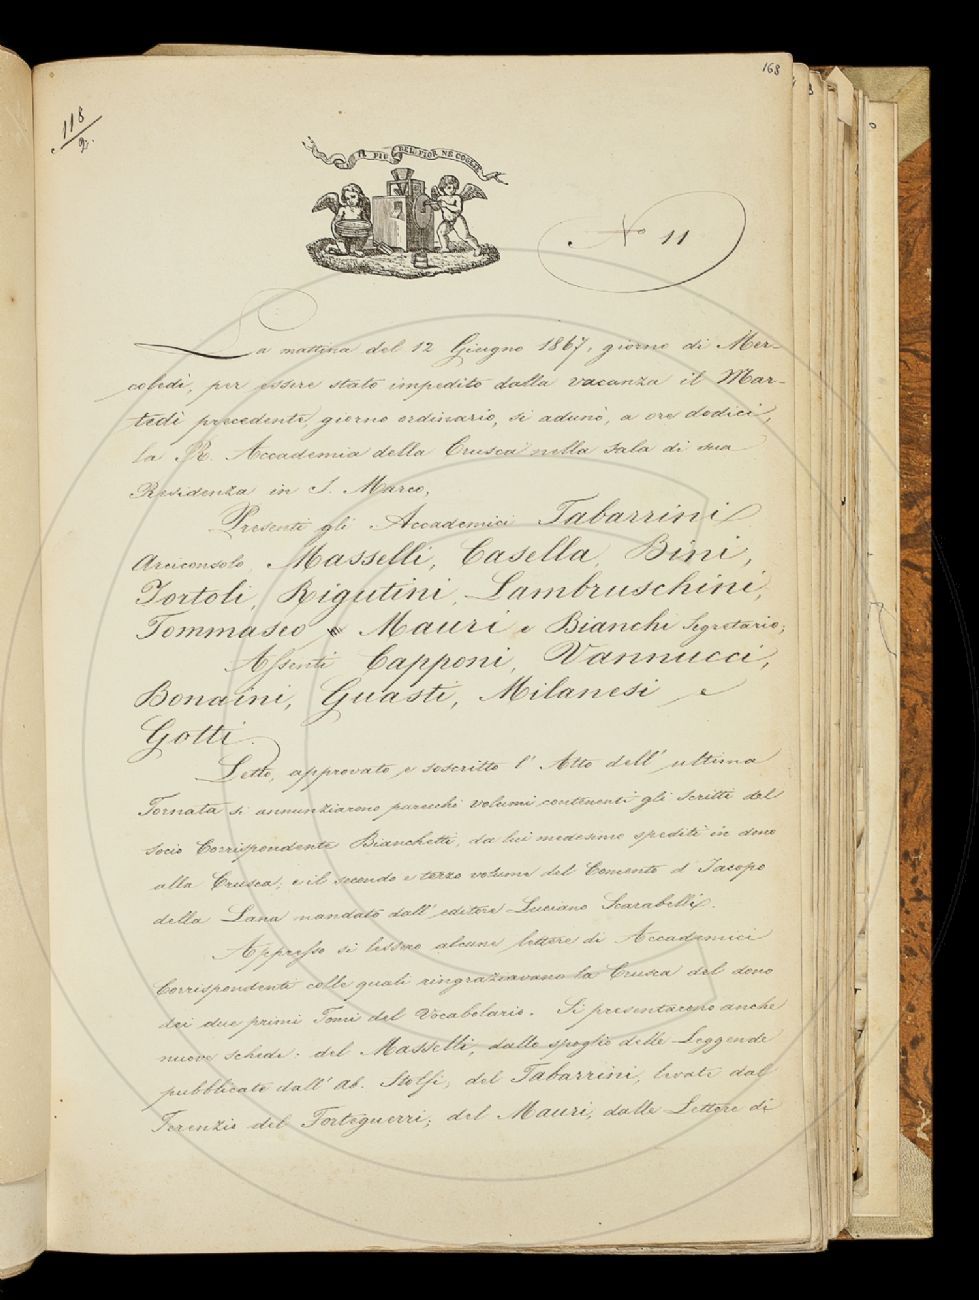 168
118
2.
IL PIÙ BEL FIOR NE COGLIE
N.o 11
La mattina del 12 Giugno 1867, giorno di Mer-
coledì, per essere stato impedito dalla vacanza il Mar-
tedì precedente, giorno ordinario, si adunò, a ore dodici,
la R. Accademia della Crusca nella sala di sua
Residenza in S. Marco.
Presenti gli Accademici Tabarrini
Arciconsolo, Masselli, Casella, Bini,
Tortoli, Rigutini, Lambruschini,
Tommaseo e Mauri e Bianchi Segretario;
Assenti Capponi, Vannucci,
Bonaini, Guasti, Milanesi e
Gotti.
Letto, approvato e soscritto l' Atto dell' ultima
Tornata si annunziarono parecchi volumi contenenti gli scritti del
socio Corrispondente Bianchetti, da lui medesimo spediti in dono
alla Crusca, e il secondo e terzo volume del Comento d' Jacopo
della Lana mandato dall' editore Luciano Scarabelli.
Appresso si lessero alcune lettere di Accademici
Corrispondenti colle quali ringraziavano la Crusca del dono
dei due primi Tomi del Vocabolario. Si presentarono anche
nuove schede: del Masselli, dallo spoglio delle Leggende
pubblicate dall' Ab. Stolfi; del Tabarrini, levate dal
Terenzio del Forteguerri; del Mauri, dalle Lettere di